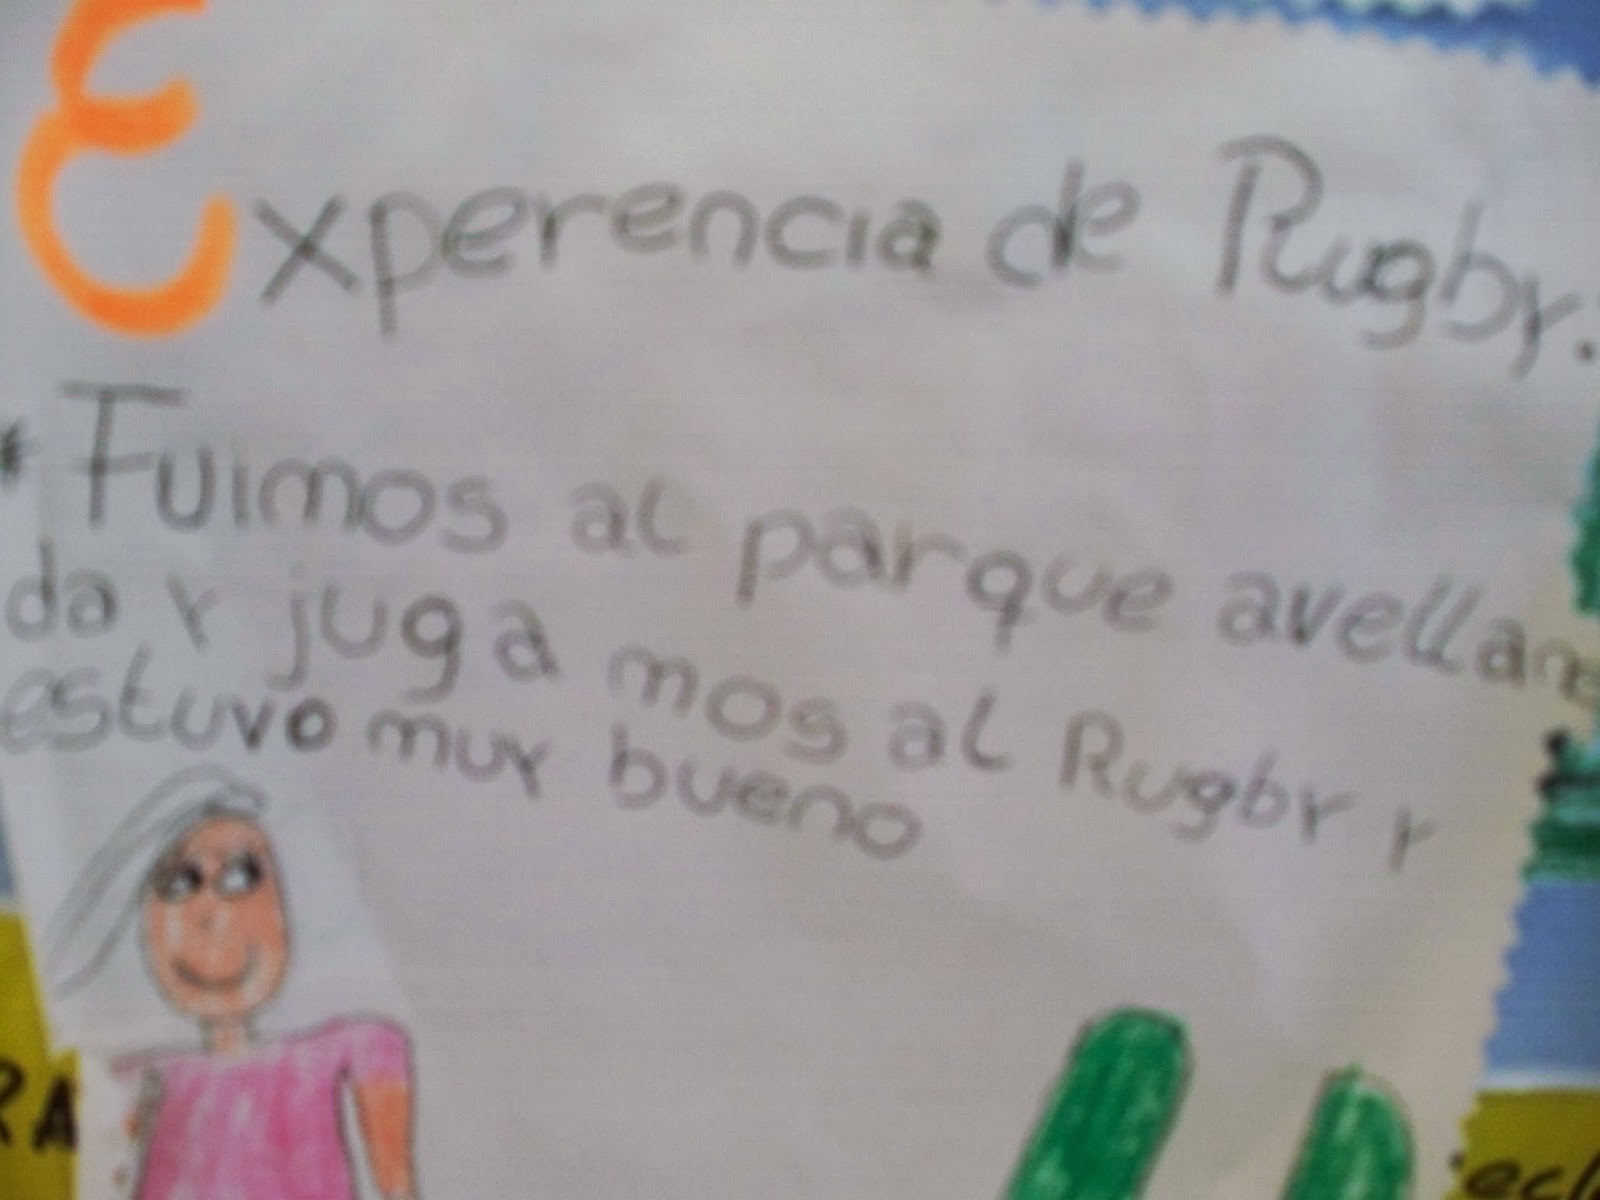 Experencia de Rugby.
* Fuimos al parque avellane
da y juga mos al Rugby y
estuvo muy bueno
RA